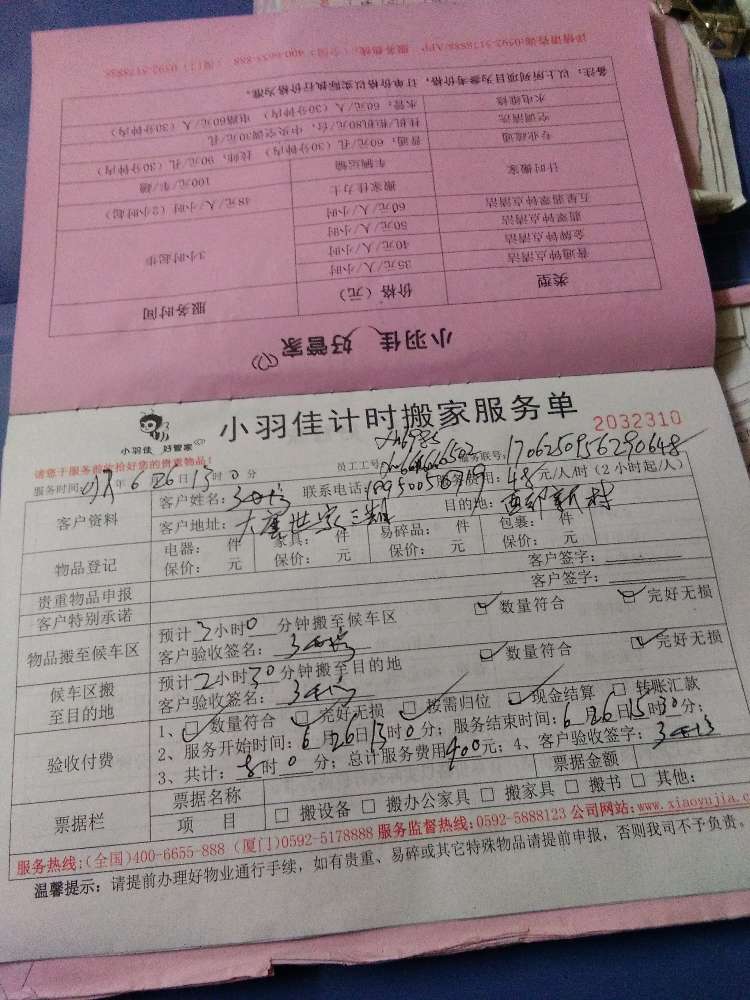 详情请咨询:0592-5178888/APP 服务热线：（全国）400-6655-888 （厦门）0592-5178888
小羽佳 好管家
类型 价格（元） 服务时间
普通钟点清洁 35元/人/小时 3小时起步
金牌钟点清洁 40元/人/小时
翡翠钟点清洁 50元/人/小时
五星翡翠钟点清洁 60元/人/小时
计时搬家 搬家佳力士 48元/人/小时（2小时起）
车辆运输 100元/车/趟
专业疏通 普通，60元/孔（30分钟内） 技师，90元/孔（30分钟内）
空调清洗 挂机/柜机80元/台，中央空调30元/孔
水电维修 水管，60元/人（30分钟内） 电路60元/人（30分钟内）
备注：以上所列项目为参考价格，订单价格以实际执行价格为准。
小羽佳 好管家
小羽佳计时搬家服务单
2032310
请您于服务前收拾好您的贵重物品！
员工工号 服务联号：170625095629 0648
服务时间： 年6月26日13时0分
客户资料 客户姓名： 联系电话： 服务费用：48元/人/时（2小时起/人）
客户地址：大唐世家三期 目的地：
物品登记 电器： 件 家具： 件 易碎品： 件 包裹： 件
保价： 元 保价： 元 保价： 元 保价： 元
贵重物品申报 客户签字：
客户特别承诺 客户签字：
物品搬至候车区 预计2小时0分钟搬至候车区 ☑ 数量符合 ☑ 完好无损
客户验收签名：
候车区搬至目的地 预计2小时30分钟搬至目的地 ☑ 数量符合 ☑ 完好无损
客户验收签名：
验收付费 1、☑ 数量符合 ☑ 完好无损 ☑ 按需归位 ☑ 现金结算 □ 转账汇款
2、服务开始时间：6月26日13时0分；服务结束时间：6月26日15时30分；
3、共计：8时0分；总计服务费用400元；4、客户验收签字：
票据栏 票据名称 票据金额
项 目 □ 搬设备 □ 搬办公家具 □ 搬家具 □ 搬书 □ 其他：
服务热线:(全国)400-6655-888 (厦门)0592-5178888 服务监督热线:0592-5888123 公司网站:www.xiaoyujia.c
温馨提示：请提前办理好物业通行手续，如有贵重、易碎或其它特殊物品请提前申报，否则我司不予负责。